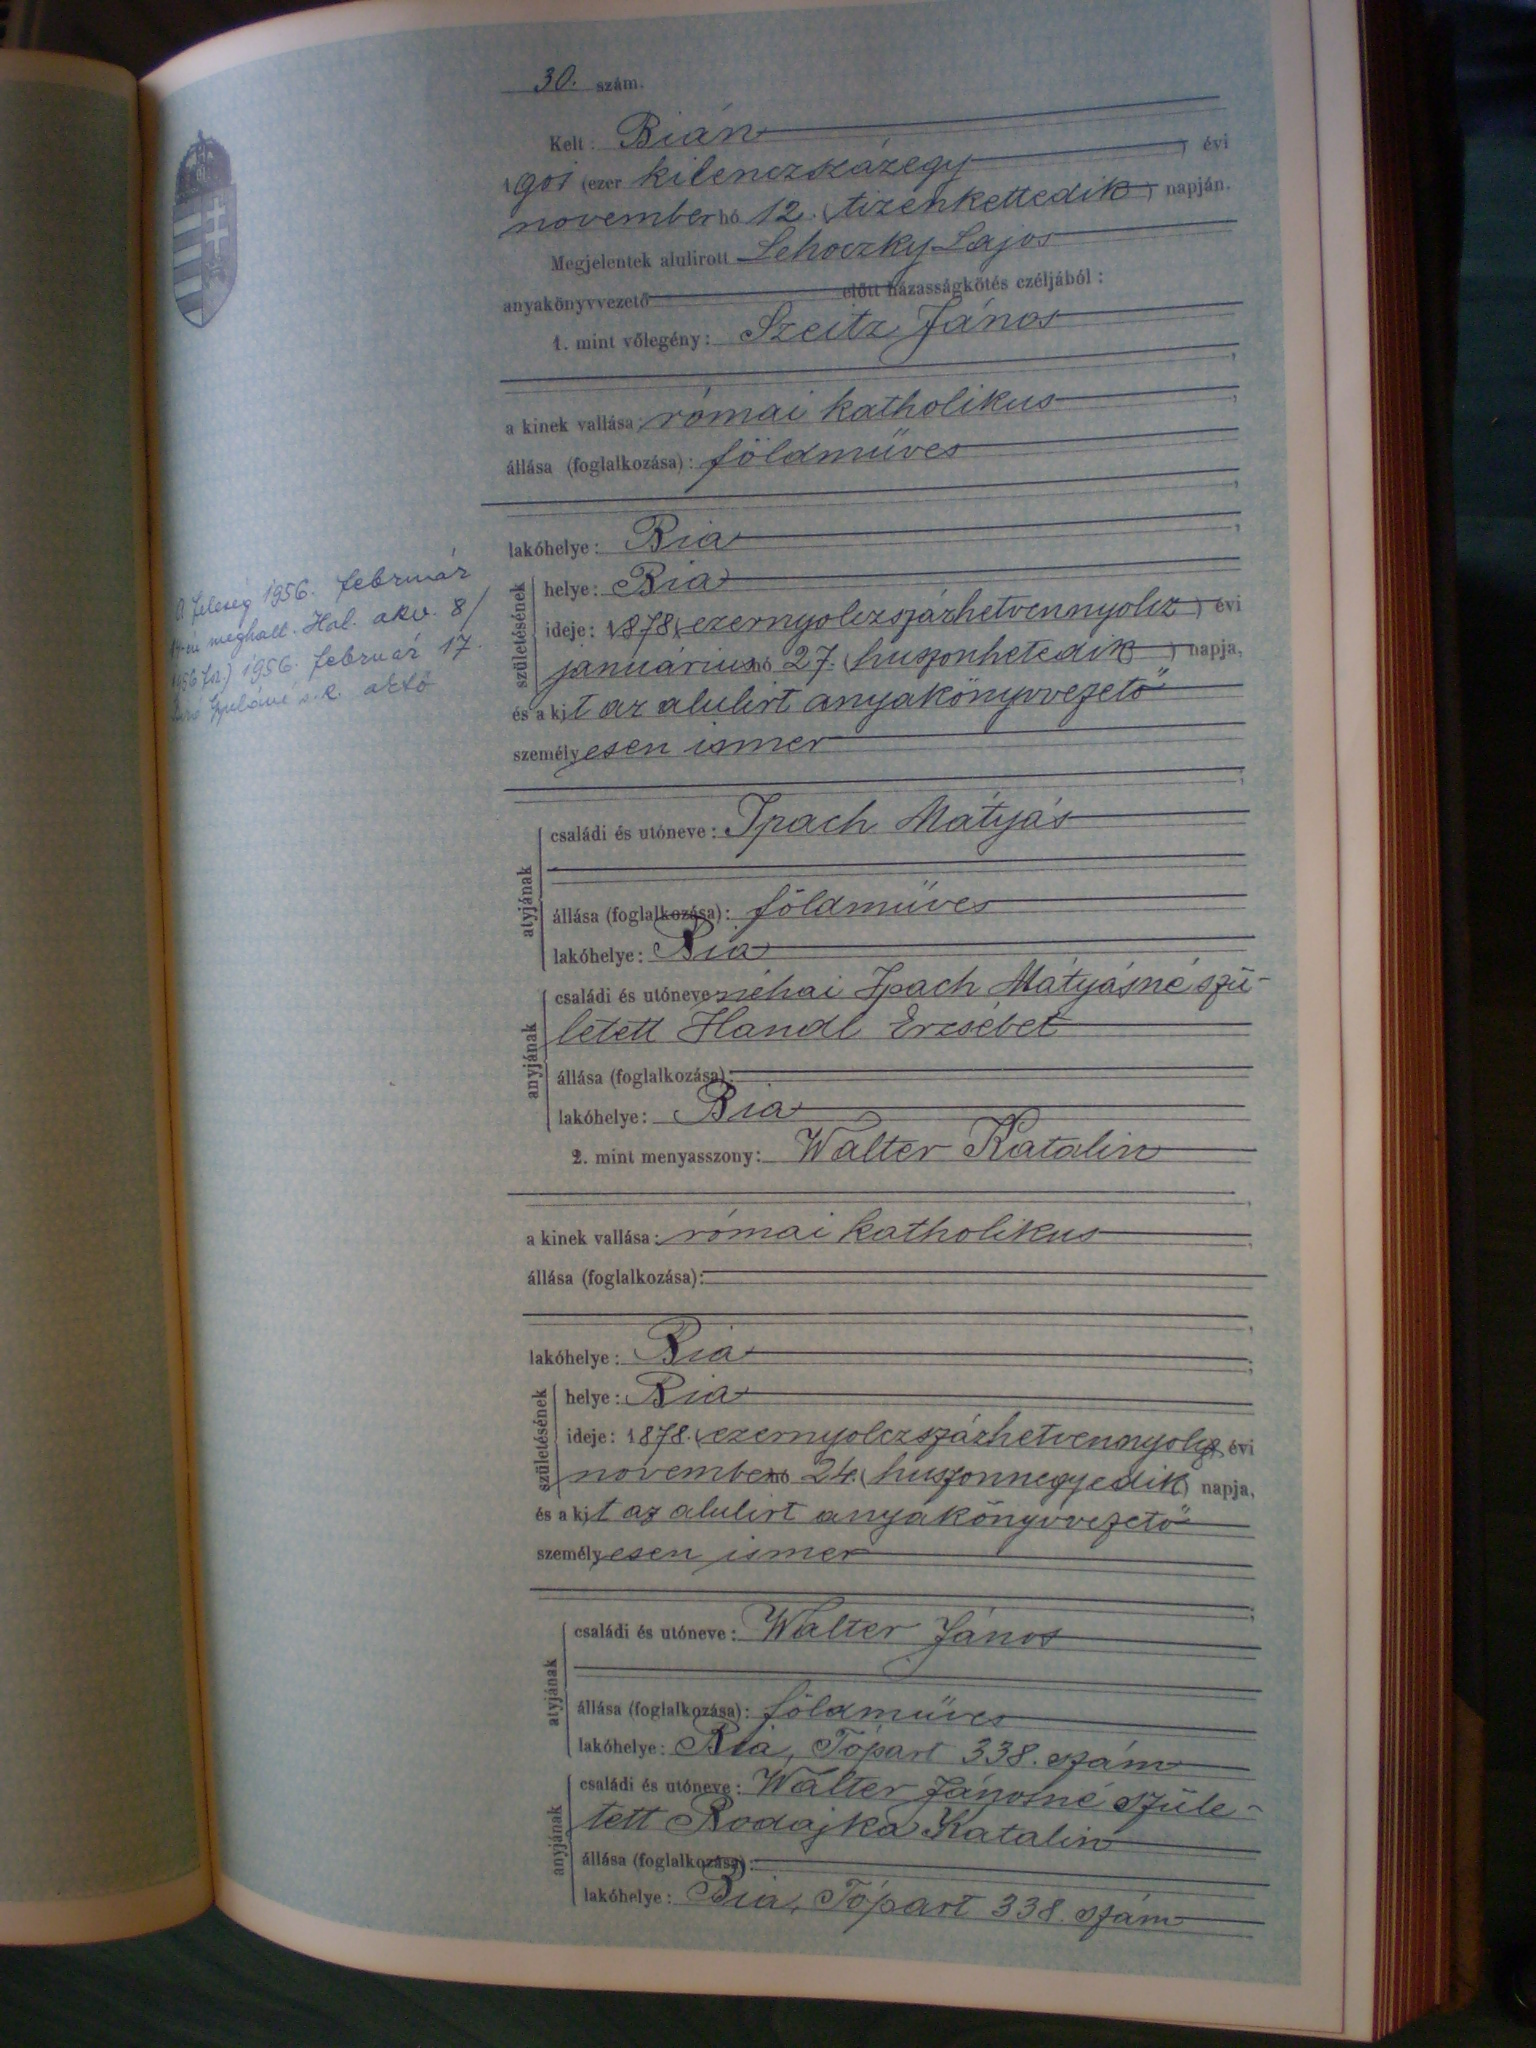 30. szám.
Kelt: Bián
1901 (ezer kilenczszázegy) évi
november hó 12. (tizenkettedik) napján.
Megjelentek alulirott Lehoczky Lajos
anyakönyvvezető előtt házasságkötés czéljából:
1. mint vőlegény: Szeitz János
a kinek vallása: római katholikus
állása (foglalkozása): földmüves
lakóhelye: Bia
születésének
helye: Bia
ideje: 1878. (ezernyolczszázhetvennyolcz) évi
januárius hó 27. (huszonhetedik) napja,
és a kit az alulirt anyakönyvvezető
személyesen ismer
atyjának
családi és utóneve: Ipach Mátyás
állása (foglalkozása): földmüves
lakóhelye: Bia
anyjának
családi és utóneve: néhai Ipach Mátyásné szü-
letett Handl Erzsébet
állása (foglalkozása):
lakóhelye: Bia
2. mint menyasszony: Walter Katalin
a kinek vallása: római katholikus
állása (foglalkozása):
lakóhelye: Bia
születésének
helye: Bia
ideje: 1878. (ezernyolczszázhetvennyolcz) évi
november hó 24. (huszonnegyedik) napja,
és a kit az alulirt anyakönyvvezető
személyesen ismer
atyjának
családi és utóneve: Walter János
állása (foglalkozása): földmüves
lakóhelye: Bia, Tópart 338. szám
anyjának
családi és utóneve: Walter Jánosné szüle-
tett Rodajka Katalin
állása (foglalkozása):
lakóhelye: Bia, Tópart 338. szám
A feleség 1956. február
meghalt. Hal. akv. 8/
1956 1956. február 17.
s.k. aktő